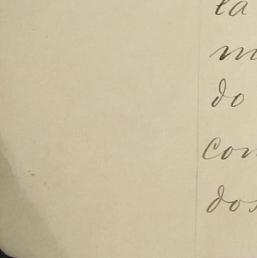 la
m
do
con
dos